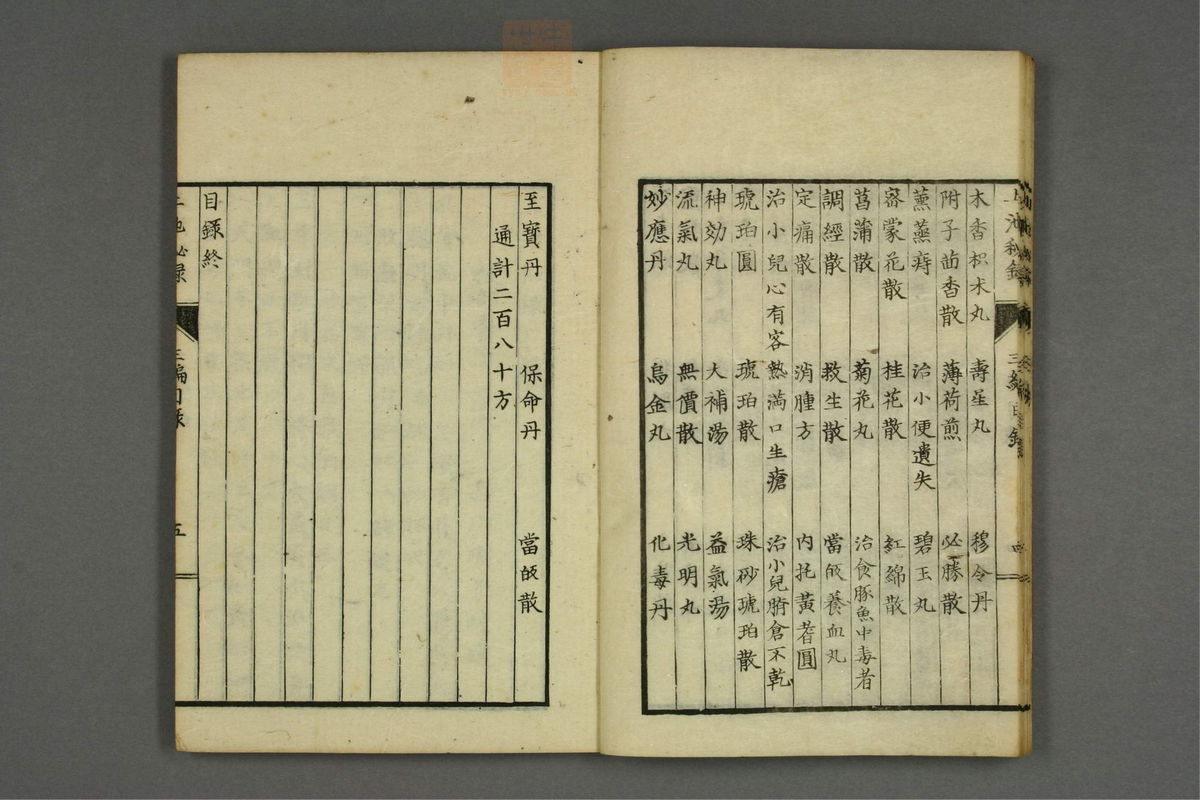 木香枳朮丸 壽星丸 穆令丹
附子茴香散 薄荷煎 必勝散
薰蒸痔 治小便遺失 碧玉丸
密蒙花散 桂花散 紅綿散
菖蒲散 菊花丸 治食豚魚中毒者
調經散 救生散 當皈養血丸
定痛散 消腫方 內托黃耆圓
治小兒心有客熱滿口生瘡 治小兒臍倉不乾
琥珀圓 琥珀散 珠砂琥珀散
神効丸 大補湯 益氣湯
流氣丸 無價散 光明丸
妙應丹 烏金丸 化毒丹
至寶丹 保命丹 當皈散
通計二百八十方
目錄終
上池秘录 三編目錄 五